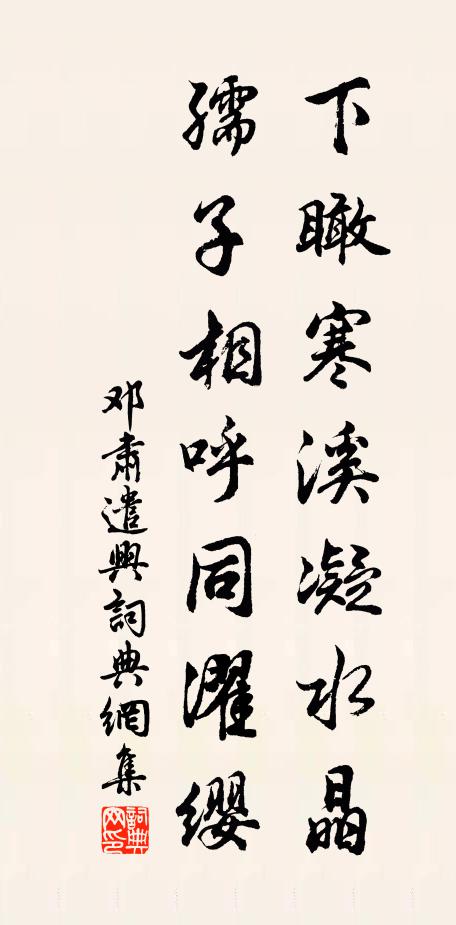 下瞰寒溪凝水晶
孺子相呼同濯缨
邓肃遣興詞典網集
詞典网印